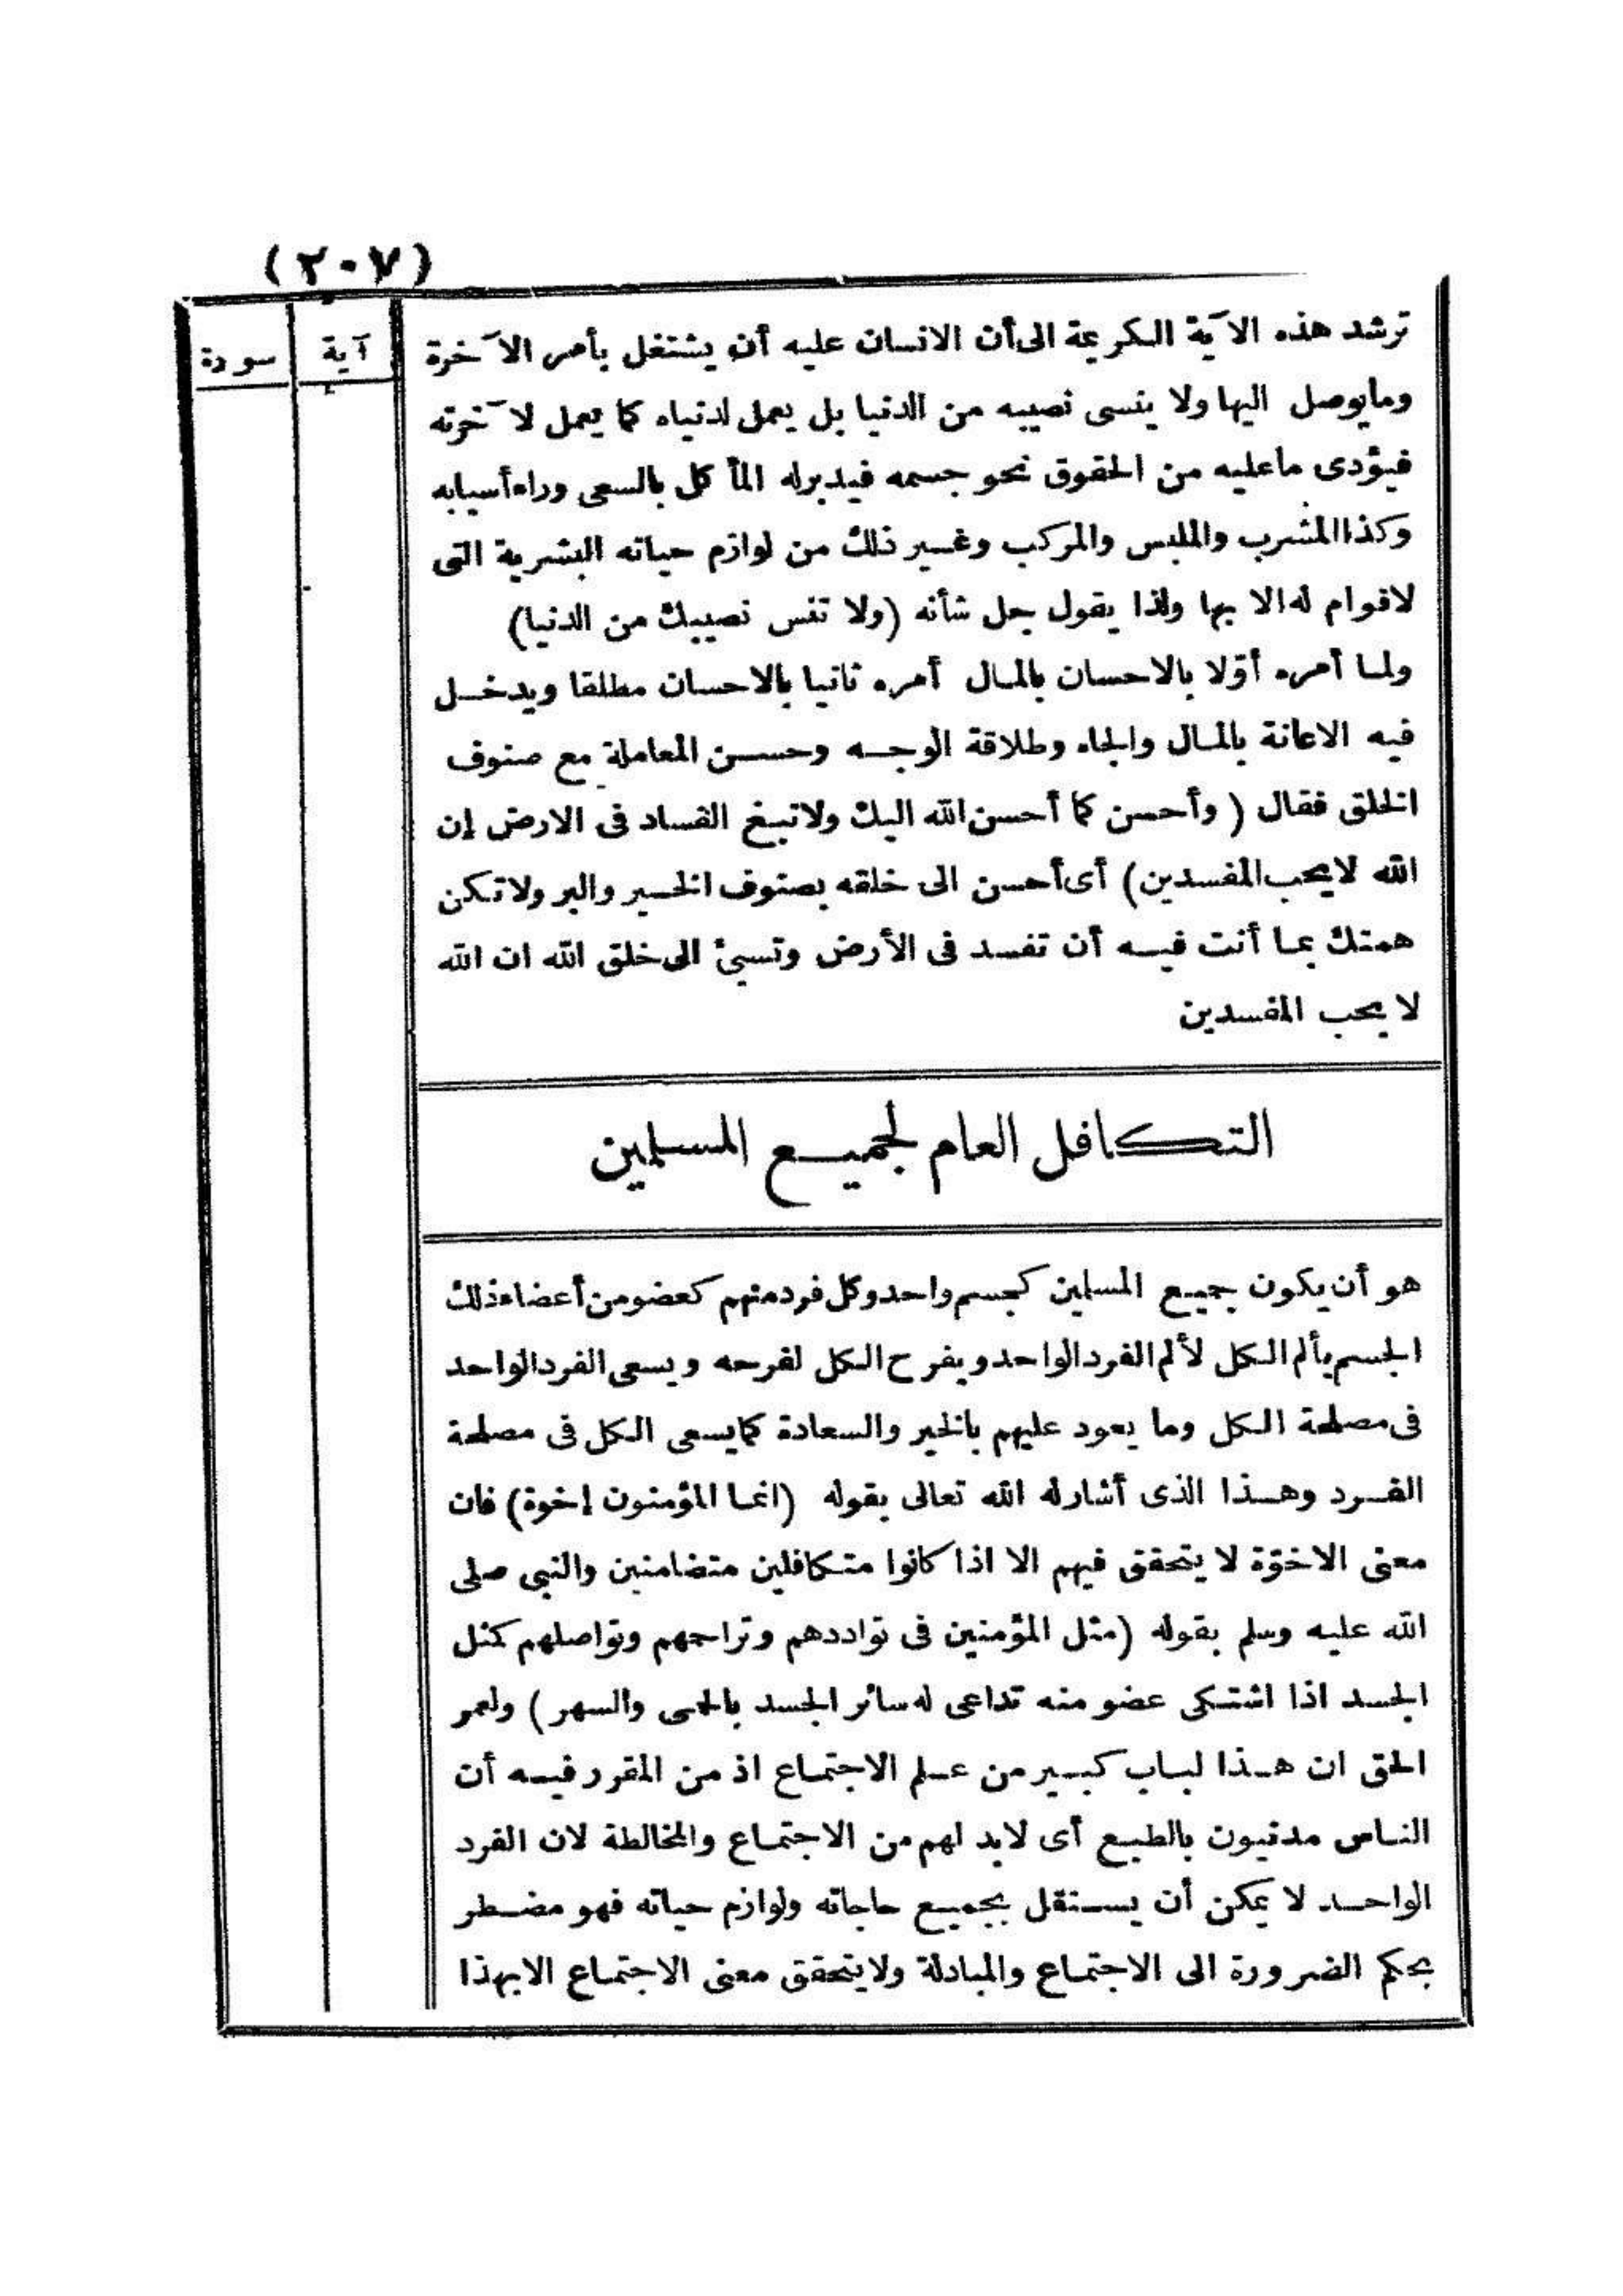 (٢٠٧)
آية سورة
ترشد هذه الآية الكريمة الى أن الانسان عليه أن يشتغل بأمر الآخرة
وما يوصل اليها ولا ينسى نصيبه من الدنيا بل يعمل لدنياه كما يعمل لآخرته
فيؤدى ما عليه من الحقوق نحو جسمه فيدبر له المأكل بالسعى وراء أسبابه
وكذا المشرب والملبس والمركب وغير ذلك من لوازم حياته البشرية التى
لاقوام له الا بها ولذا يقول جل شأنه (ولا تنس نصيبك من الدنيا)
ولما أمره أوّلا بالاحسان بالمال أمره ثانيا بالاحسان مطلقا ويدخل
فيه الاعانة بالمال والجاه وطلاقة الوجه وحسن المعاملة مع صنوف
الخلق فقال (وأحسن كما أحسن الله اليك ولا تبغ الفساد فى الارض إن
الله لا يحب المفسدين) أى أحسن الى خلقه بصنوف الخير والبر ولا تكن
همتك بما أنت فيه أن تفسد فى الأرض وتسئ الى خلق الله ان الله
لا يحب المفسدين
التكافل العام لجميع المسلمين
هو أن يكون جميع المسلمين كجسم واحد وكل فرد منهم كعضو من أعضاء ذلك
الجسم يألم الكل لألم الفرد الواحد ويفرح الكل لفرحه ويسعى الفرد الواحد
فى مصلحة الكل وما يعود عليهم بالخير والسعادة كما يسعى الكل فى مصلحة
الفرد وهذا الذى أشار له الله تعالى بقوله (انما المؤمنون إخوة) فان
معنى الاخوّة لا يتحقق فيهم الا اذا كانوا متكافلين متضامنين والنبى صلى
الله عليه وسلم بقوله (مثل المؤمنين فى تواددهم وتراحمهم وتواصلهم كمثل
الجسد اذا اشتكى عضو منه تداعى له سائر الجسد بالحمى والسهر) ولعمر
الحق ان هذا لباب كبير من علم الاجتماع اذ من المقرر فيه أن
الناس مدنيون بالطبع أى لابد لهم من الاجتماع والمخالطة لان الفرد
الواحد لا يمكن أن يستقل بجميع حاجاته ولوازم حياته فهو مضطر
بحكم الضرورة الى الاجتماع والمبادلة ولا يتحقق معنى الاجتماع الا بهذا